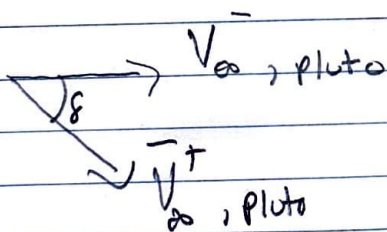 V̄∞, pluto
δ
V̄⁺∞, Pluto